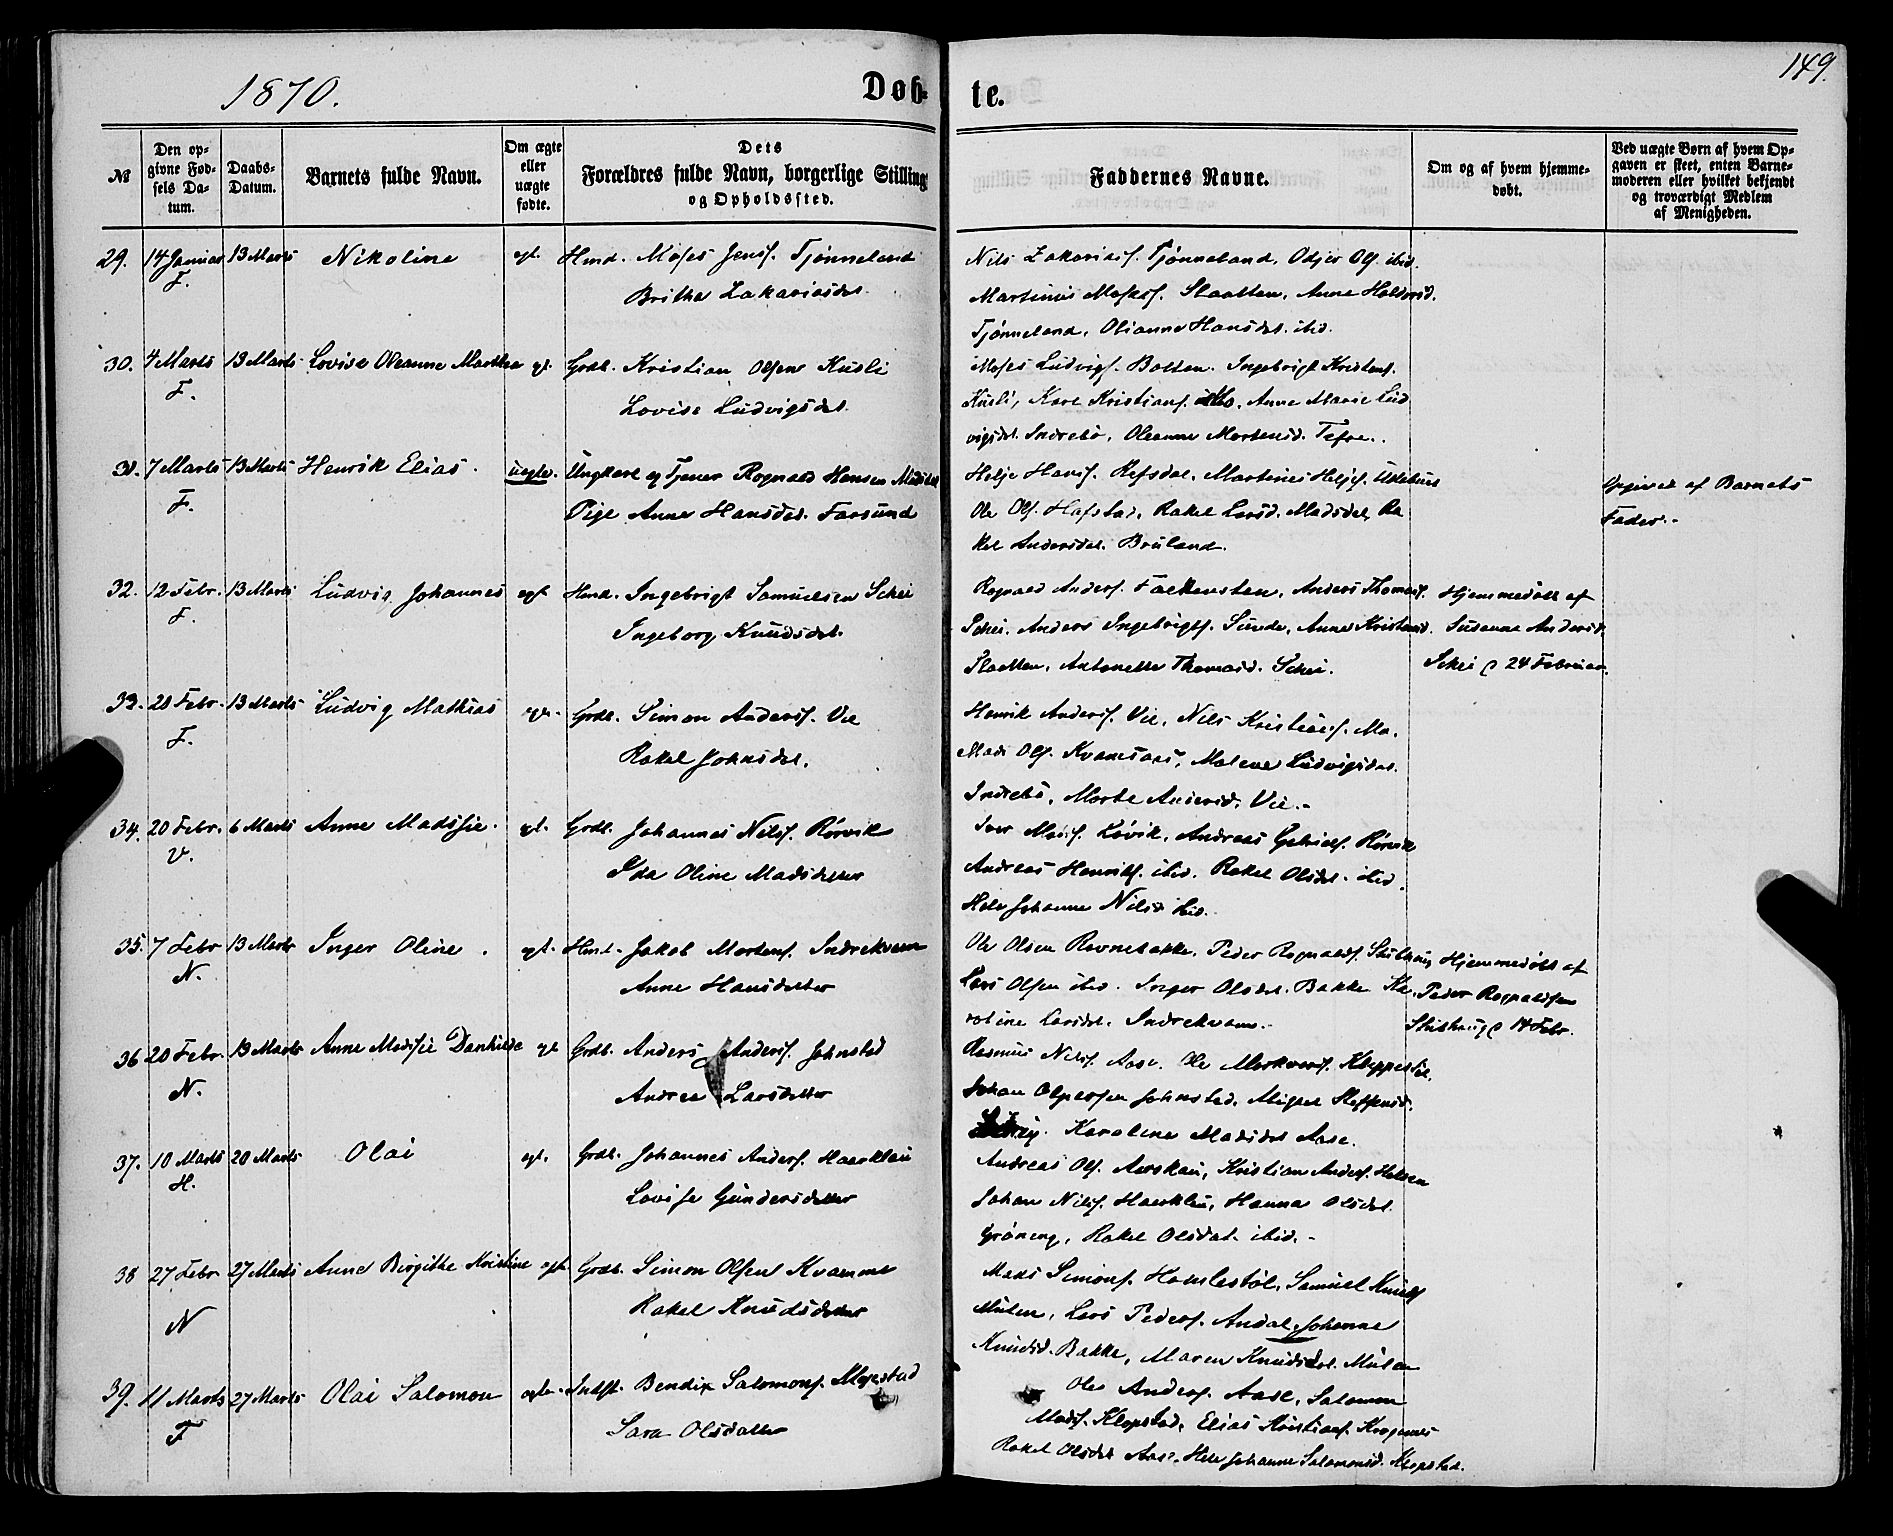 1870.
Døb-
te.
149.
№
Den op-
givne Fød-
sels Da-
tum.
Daabs-
Datum.
Barnets fulde Navn.
Om ægte
eller
uægte
fødte.
Dets
Forældres fulde Navn, borgerlige Stilling
og Opholdssted.
Faddernes Navne.
Om og af hvem hjemme-
døbt.
Ved uægte Børn af hvem Op-
gaven er skeet, enten Barne-
moderen eller hvilket bekjendt
og troværdigt Medlem
af Menigheden.
29. 14 Januar 13 Marts Nikoline egt. Hmd. Moses Jensf. Tjønneland
F. Brithe Zakariasdt.
Nils Zakariasf. Tjønneland, Odjer Olf. ibid.
Martinus Mosesf. Slaatten, Anne Haldorsd.
Tjønneland, Olianne Hansdt. ibid.
30. 4 Marts 13 Marts Lovise Oleanne Marthea egt. Grdb. Kristian Olsen Kusli
F. Lovise Ludvigsdt.
Moses Ludvigf. Bolten, Ingebrigt Kristens.
Kusli, Kare Kristiansf. Mo, Anne Marie Lud
vigsdt. Indrebø, Oleanne Mortensd. Tefre.
31. 7 Marts 13 Marts Henrik Elias. uegte. Ungkarl og Tjener Rognald Hansen Madsdal
F. Pige Anne Hansdt. Farsund
Helje Hansf. Refsdal, Martinus Heljef.
Ole Olf. Hafstad, Rakel Larsd. Madsdal, Ra
kel Andersdt. Bruland.
Opgivet af Barnets
Fader.-
32. 12 Febr. 13 Marts Ludvig Johannes egt Hmd. Ingebrigt Samuelsen Schei
F. Ingeborg Knudsdt.
Rognald Andersf. Falkensten, Anders Thomasf.
Schei, Anders Ingebrigtf. Sunde, Anne Kristensd.
Slaatten, Antonette Thomasd. Schei.
Hjemmedøbt af
Susanne Andersd.
Schei d 24 Februar.
33. 20 Febr. 13 Marts Ludvig Mathias egt. Grdb. Simon Andersf. Vie
F. Rakel Johnsdt.
Henrik Andersf. Vie, Nils Kristiansf. Mo,
Mads Olf. Kvamsaas, Malene Ludvigsdt.
Indrebø, Marte Andersd. Vie.-
34. 20 Febr. 6 Marts Anne Madsjie. egt. Grdb. Johannes Nilsf. Rørvik
V. Ida Oline Madsdatter
Iver Madsf. Løvik, Andreas Gabrielf. Rørvik
Andreas Henrikf. ibid. Rakel Olsdt. ibid.
Hele Johanne Nilsd. ibid.
35. 7 Febr 13 Marts Inger Oline. egt. Hmd. Jakob Mortensf. Indrekvam
N. Anne Hansdatter
Ole Olsen Ravnebakke, Peder Rognaldsf. Stubhaug
Lars Olsen ibid. Inger Olsdt. Bakke Ka
roline Larsdt. Indrekvam.-
Hjemmedøbt af
Peder Rognaldsen
Stubhaug d 14 Febr.
36 20 Febr. 13 Marts Anne Madsjie Dankilde egt Grdb. Anders Andersf. Johnstad
N. Andrea Larsdatter
Rasmus Nilsf. Aase. Ole Markusf. Kleppestøl.
Johan Olpersen Johnstad, Steffensd.
Karoline Madsdt. Aase.
37. 10 Marts 20 Marts Olai egt. Grdb. Johannes Andersf. Haarklau
H. Lovise Gundersdatter
Andreas Olf. Aarskau, Kristian Andersf. Helsen
Johan Nilsf. Haarklau, Hanna Olsdt.
Grøneng, Rakel Olsdat. ibid.-
38 27 Febr 27 Marts Anne Birgithe Kristine egt. Grdb. Simon Olsen Kvamme
N Rakel Knudsdatter
Mads Simonsf. Hamlestøl, Samuel Knudf.
Mulen, Lars Pedersf. Andal, Johanne
Knudsd. Bakke, Maren Knudsdt. Mulen
39. 11 Marts 27 Marts Olai Salomon egte. Indst. Bendix Salomonsf. Myestad
F Sara Olsdatter
Ole Andersf. Aase, Salomon
Madsf. Klopstad, Elias Kristiansf. Krogenes
Rakel Olsdt Aase, Hele Johanne Salomonsd. Klopstad.